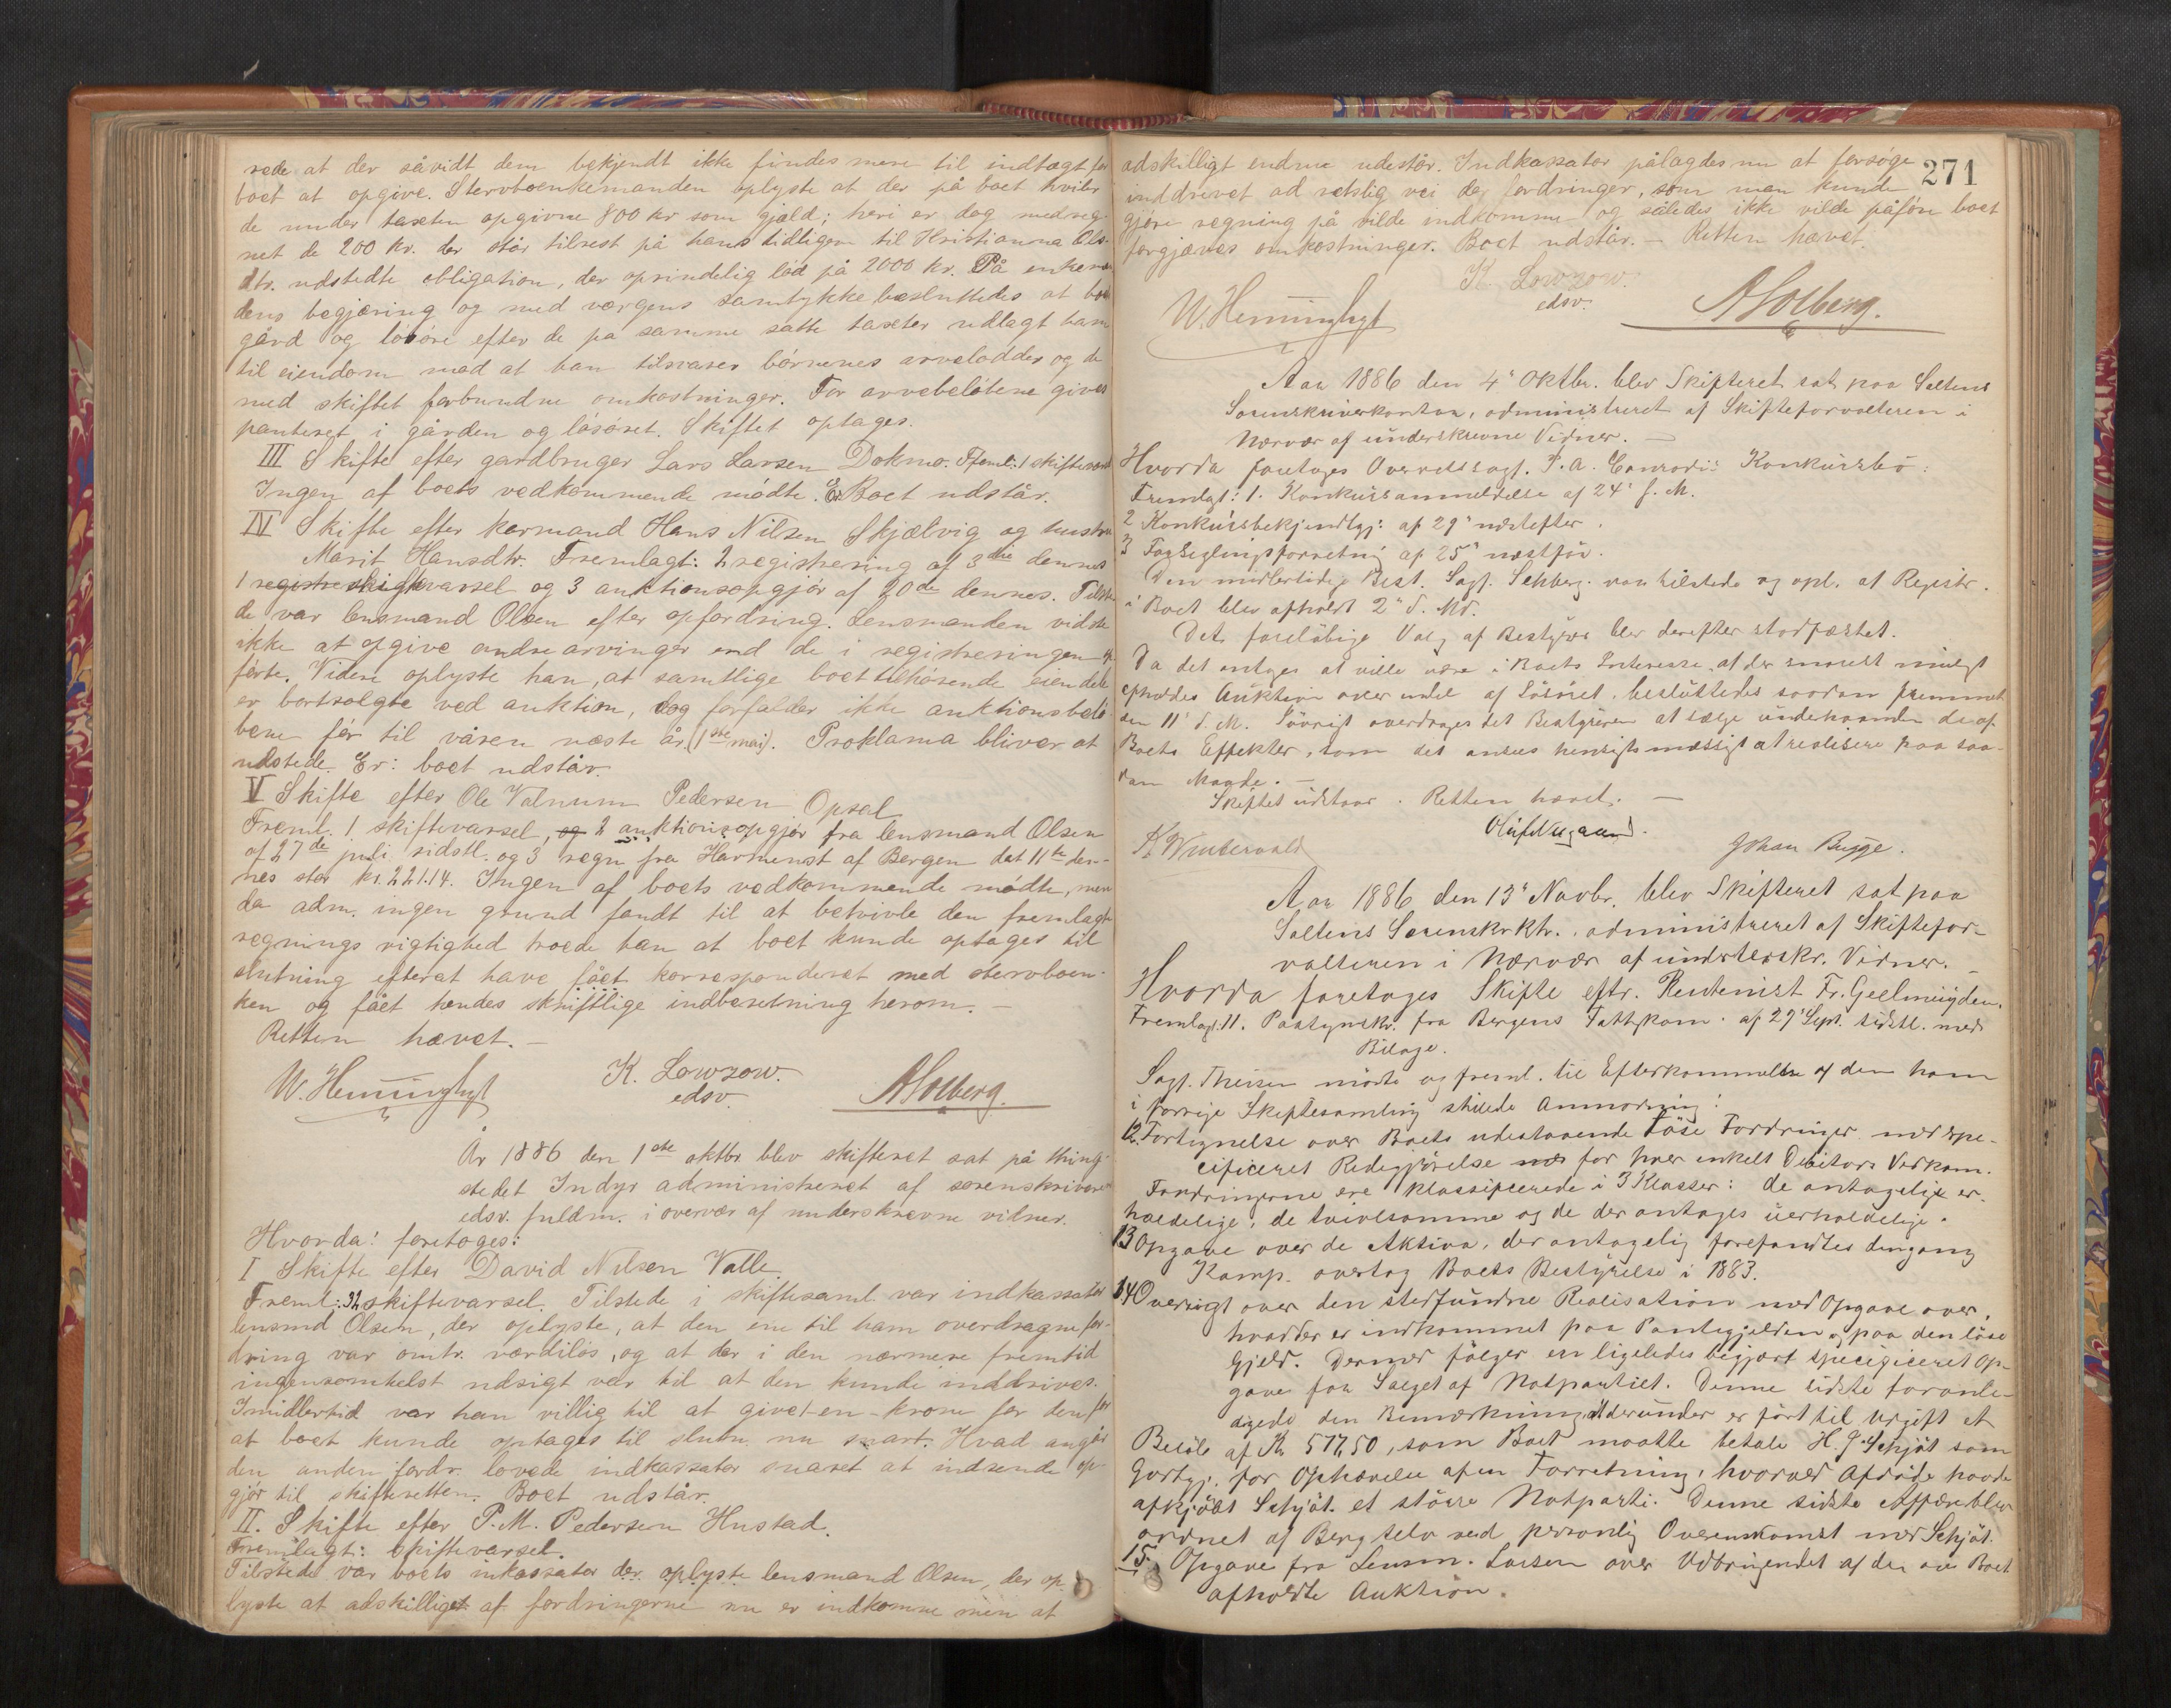 rede at der såvidt dem bekjendt ikke findes mere til indtægt for
boet at opgive. Stervboenkemanden oplyste at der på boet hviler
de under taxten opgivne 800 kr som gjæld; heri er dog medreg-
net de 200 kr. der står tilrest på hans tidligere til Kristianna Ols-
dtr. udstedte obligation, der oprindelig lød på 2000 kr. På enkeman
dens begjæring og med værgens samtykke besluttedes at boets
gård og løsøre efter de på samme satte taxter udlagt ham
til eiendom mod at han tilsvarer børnenes arvelodder og de
med skiftet forbundne omkostninger. For arvebeløbene gives
panteret i gården og løsøret. Skiftet optages.
III Skifte efter gardbruger Lars Larsen Dokmo. Freml: 1 skiftevarsel
Ingen af boets vedkommende mødte. Er: Boet udstår.
IV Skifte efter kårmand Hans Nilsen Skjælvig og hustru
Marit Hansdtr. Fremlagt: 2 registrering af 3die dennes
1 registre skiftevarsel og 3 auktionsopgjør af 20de dennes. Tilste
de var lensmand Olsen efter opfordring. Lensmanden vidste
ikke at opgive andre arvinger end de i registreringen op
førte. Videre oplyste han, at samtlige boet tilhørende eiendele
er bortsolgte ved auktion, dog forfalder ikke auktionsbelø-
bene før til våren næste år (1ste mai). Proklama bliver at
udstede. Er: boet udstår.
V Skifte efter Ole Valnum Pedersen Opsal
Freml. 1 skiftevarsel, og 2 auktionsopgjør fra lensmand Olsen
af 27de juli sidstl. og 3 regn fra Harmenst af Bergen dat 11te den-
nes stor kr. 221.14. Ingen af boets vedkommende mødte, men
da adm. ingen grund fandt til at betvivle den fremlagte
regnings rigtighed troede han at boet kunde optages til
slutning efterat have fået korresponderet med stervboen-
ken og fået hendes skriftlige indberetning herom.
Retten hævet. —
W. Henninghyt K. Lowzow. ASolberg.
edsv.
År 1886 den 1ste oktbr. blev skifteret sat på thing-
stedet Indyr administreret af sorenskriveren
edsv. fuldm. i overvær af underskrevne vidner.
Hvorda! foretoges:
I Skifte efter David Nilsen Valle
Freml: 32 skiftevarsel. Tilstede i skiftesaml. var indkassator
lensmd Olsen, der oplyste, at den ene til ham overdragne for-
dring var omtr. værdiløs, og at der i den nærmere fremtid
ingensomhelst udsigt var til at den kunde inddrives.
Imidlertid var han villig til at give 1-en-krone for den for
at boet kunde optages til slutn. nu snart. Hvad angår
den anden fordr. lovede indkassator snarest at indsende op-
gjør til skifteretten. Boet udstår.
II. Skifte efter P. M. Pedersen Hustad.
Fremlagt: skiftevarsel.
Tilstede var boets inkassator der oplyste lensmand Olsen, der op
lyste at adskilliget af fordringerne nu er indkomne men at
271
adskilligt endnu udestår. Indkassator pålagdes nu at forsøge
inddrevet ad retslig vei de fordringer, som man kunde
gjøre regning på vilde indkomme og således ikke vilde påføre boet
forgjæves omkostninger. Boet udstår. — Retten hævet.
K. Lowzow.
edsv.
W. Henninghyt ASolberg.
Aar 1886 den 4' Oktbr. blev Skifteret sat paa Saltens
Sorenskriverkontor, administreret af Skifteforvalteren i
Nærvær af underskrevne Vidner. —
Hvorda foretoges Overretssagf. P. A. Conradis Konkursbo:
Fremlagt: 1. Konkursanmeldelse af 24' f. M.
2 Konkursbekjendtgj: af 29' næstefter.
3 Forseglingsforretning af 25' næstfør.
Den midlertidige Best. Sagf. Sehberg. var tilstede og opl. at Registr.
i Boet blev afholdt 2' d. Md.
Det foreløbige Valg af Bestyrer blev derefter stadfæstet.
Da det antages at ville være i Boets Interesse, at der snarest muligt
afholdes Auktion over endel af Løsøret, besluttedes saadan fremmet
den 11' d. M. Iøvrigt overdrages det Bestyreren at sælge underhaanden de af
Boets Effekter, som det ansees hensigtsmæssigt at realisere paa saa-
dan Maade. —
Skiftet udstaar. Retten hævet. —
K Winterwald Oluf Nygaard. Johan Bugge.
Aar 1886 den 13' Novbr. blev Skifteret sat paa
Saltens Sorenskr.ktr. administreret af Skiftefor-
valteren i Nærvær af undertegskr. Vidner. —
Hvorda foretoges Skifte eftr. Rentenist Fr. Geelmuyden.
Fremlagt: 11. Paategnskr. fra Bergens Fattigkom. af 29' Sept. sidstl. med
Bilage.
Sagf. Theisen mødte og freml. til Efterkommelse af den ham
i forrige Skiftesamling stillede Anmodning:
12. Fortegnelse over Boets udestaaende løse Fordringer med spe-
cificeret Redegjørelse med for hver enkelt Debitors Vedkom.
Fordringerne ere klassificerede i 3 Klasser: de antagelige er-
holdelige, de tvivlsomme og de der antages uerholdelige.
13 Opgave over de Aktiva, der antagelig forefandtes dengang
Komp. overtog Boets Bestyrelse i 1883.
14 Oversigt over den stedfundne Realisation med Opgave over,
hvadder er indkommet paa Pantegjelden og paa den løse
Gjeld. Dermed følger en ligeledes begjært specificeret Op-
gave for Salget af Notpartiet. Denne sidste foranle-
digede den Bemærkning, at derunder er ført til Udgift et
Beløb af Kr 517,50, som Boet maatte betale H. J. Schjøt som
Godtgj. for Ophævelse af en Forretning, hvorved Afdøde havde
afkjøbt Schjøt et større Notparti. Denne sidste Affære blev
ordnet af Berg selv ved personlig Overenskomst med Schjøt.
15. Opgave fra Lensm. Larsen over Udbringendet af den over Boet
afholdte Auktion.